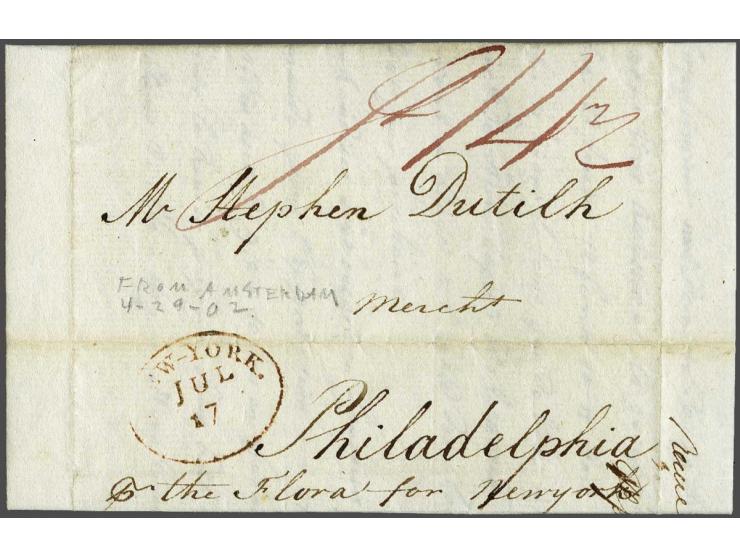 142
Mr Stephen Dutilh
FROM AMSTERDAM
4-29-02.
Mercht
NEW-YORK.
JUL
17
Philadelphia
pr the Flora for Newyork